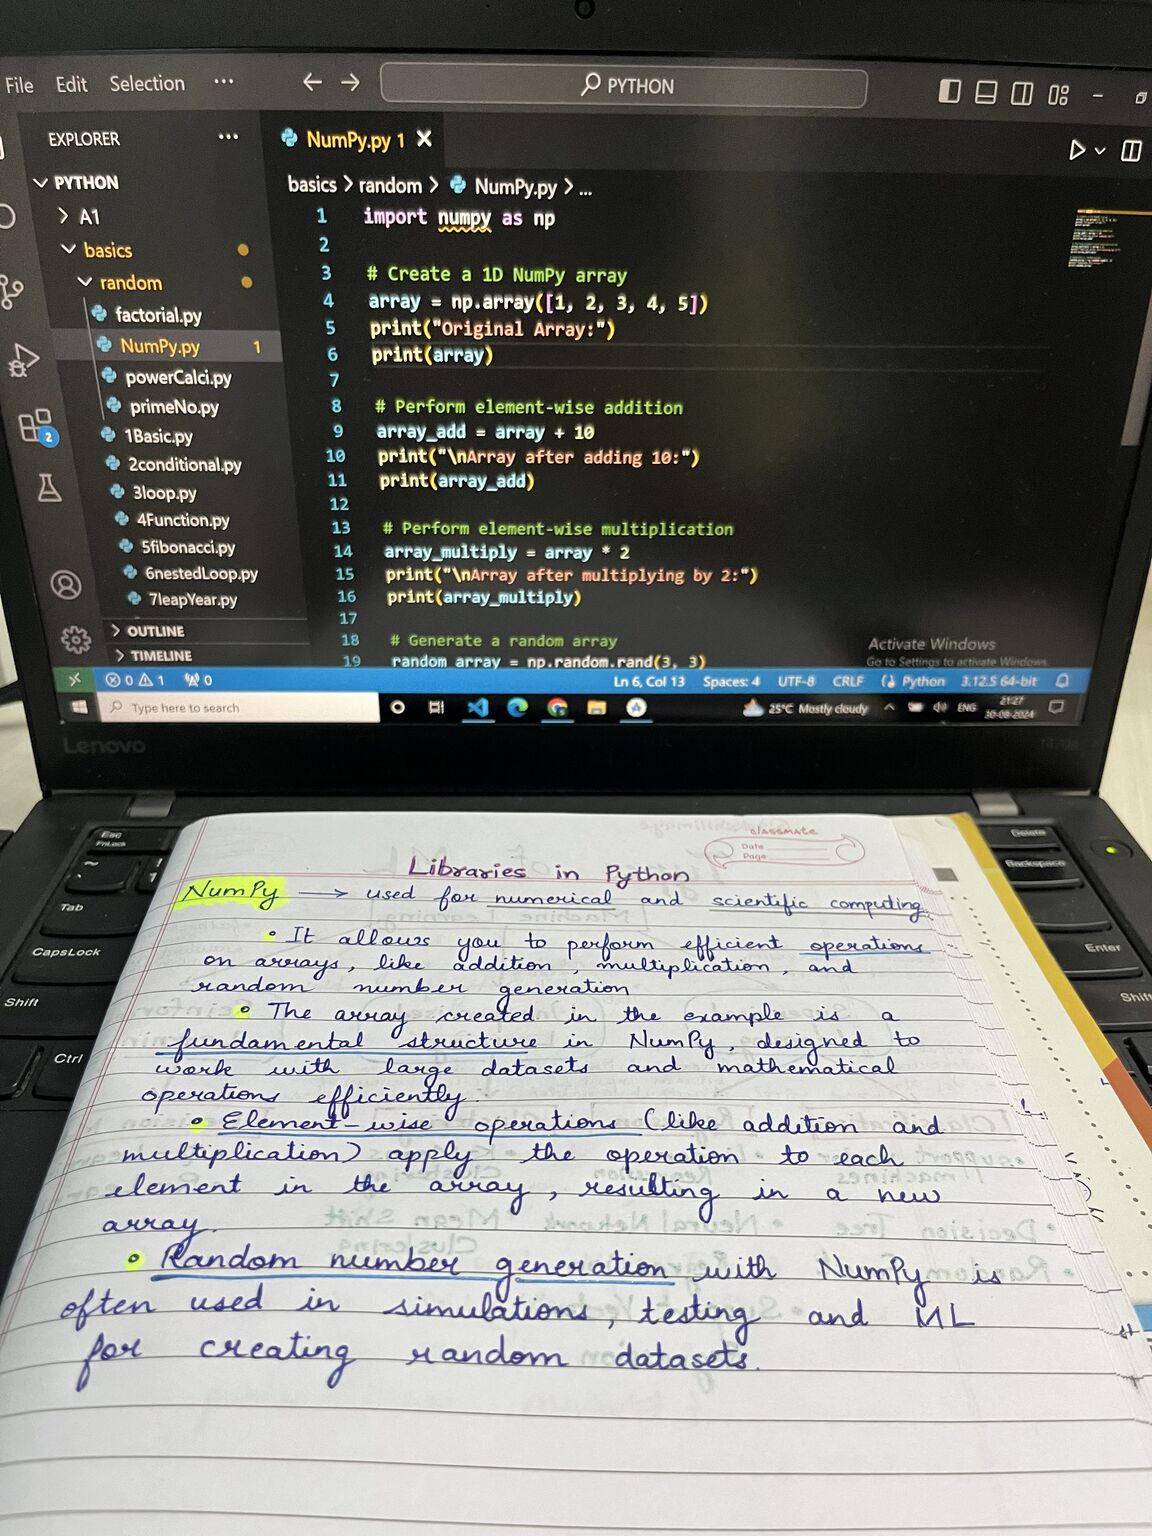 File Edit Selection ... PYTHON
EXPLORER ...
PYTHON
A1
basics
random
factorial.py
NumPy.py 1
powerCalci.py
primeNo.py
1Basic.py
2conditional.py
3loop.py
4Function.py
5fibonacci.py
6nestedLoop.py
7leapYear.py
OUTLINE
TIMELINE
2
NumPy.py 1
basics > random > NumPy.py > ...
1 import numpy as np
2
3 # Create a 1D NumPy array
4 array = np.array([1, 2, 3, 4, 5])
5 print("Original Array:")
6 print(array)
7
8 # Perform element-wise addition
9 array_add = array + 10
10 print("\nArray after adding 10:")
11 print(array_add)
12
13 # Perform element-wise multiplication
14 array_multiply = array * 2
15 print("\nArray after multiplying by 2:")
16 print(array_multiply)
17
18 # Generate a random array
19 random_array = np.random.rand(3, 3)
Activate Windows
Go to Settings to activate Windows.
0 1 0 Ln 6, Col 13 Spaces: 4 UTF-8 CRLF Python 3.12.5 64-bit
Type here to search 25°C Mostly cloudy ENG 21:27
30-08-2024
Lenovo
Esc
FnLock
~
!
Tab
CapsLock
Shift
Ctrl
Delete
Backspace
Enter
Shift
classmate
Date
Page
Libraries in Python
NumPy → used for numerical and scientific computing.
• It allows you to perform efficient operations
on arrays, like addition, multiplication, and
random number generation
• The array created in the example is a
fundamental structure in NumPy, designed to
work with large datasets and mathematical
operations efficiently.
• Element-wise operations (like addition and
multiplication) apply the operation to each
element in the array, resulting in a new
array.
• Random number generation with NumPy is
often used in simulations, testing and ML
for creating random datasets.